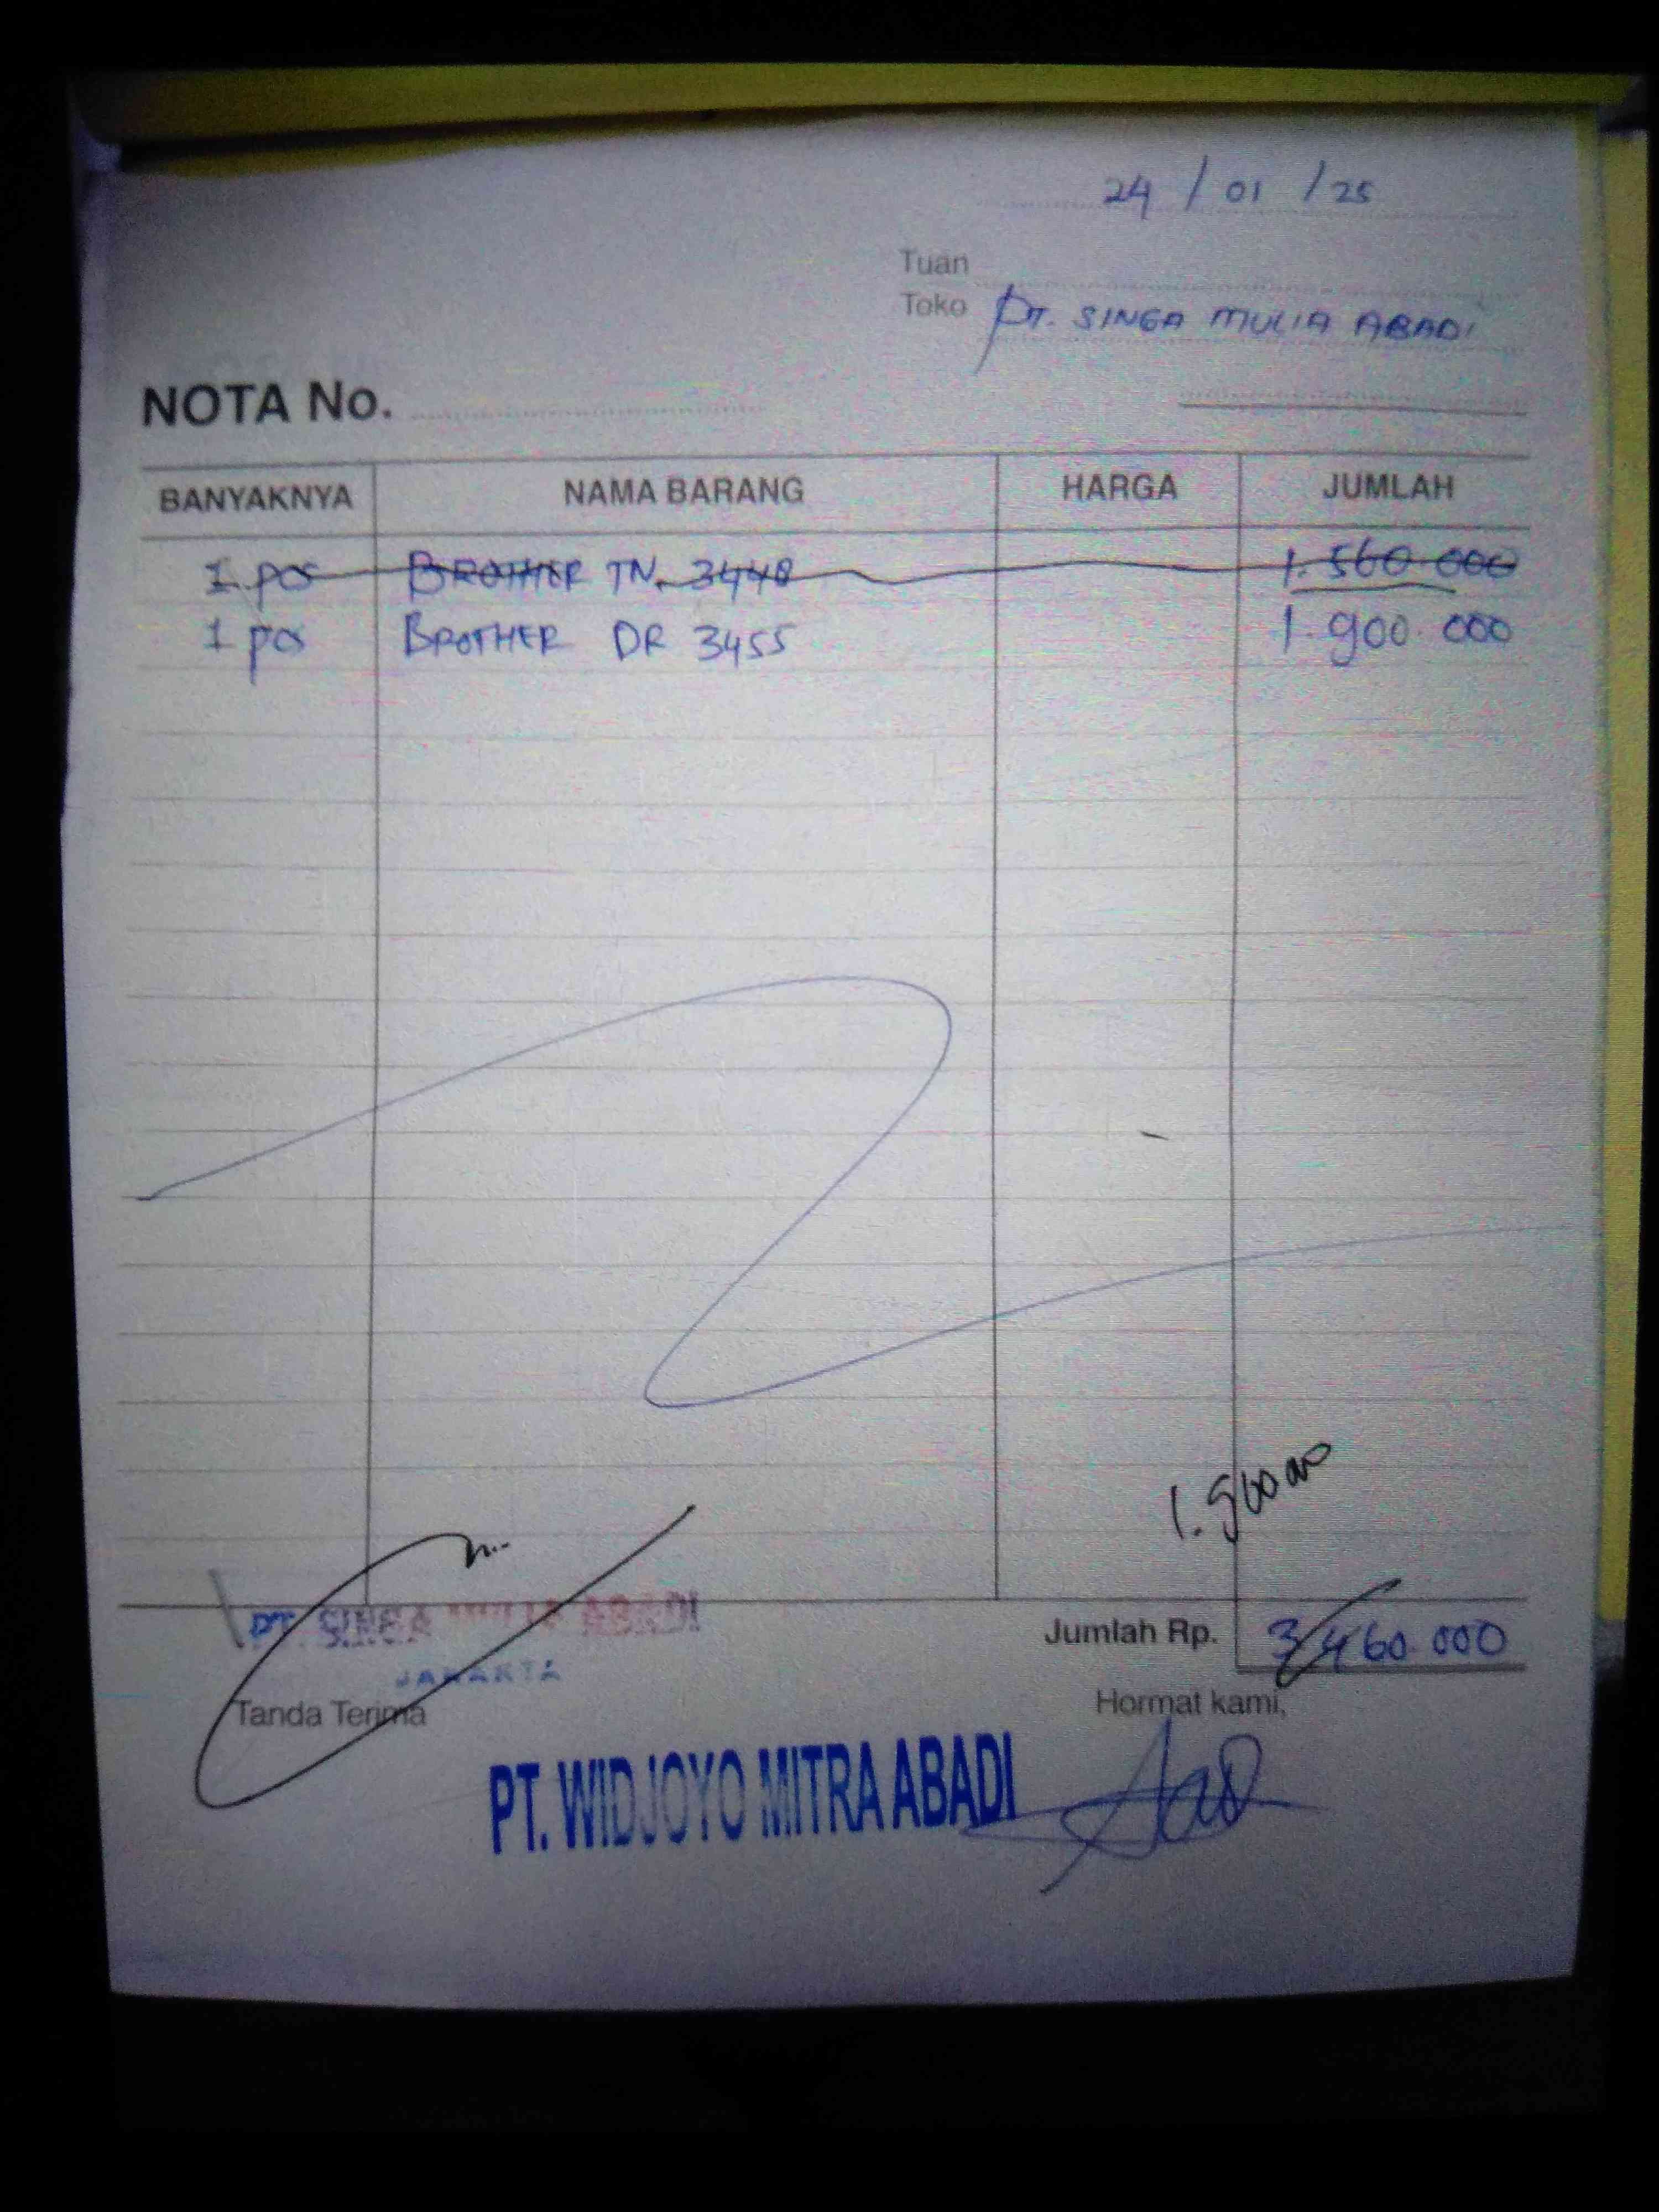 24 / 01 / 25
Tuan
Toko PT. SINGA MULIA ABADI
NOTA No.
BANYAKNYA NAMA BARANG HARGA JUMLAH
1 pcs BROTHER TN. 3448 1.560.000
1 pcs BROTHER DR 3455 1.900.000
1.900.000
PT. SINGA MULIA ABADI
JAKARTA
Jumlah Rp. 3.460.000
Tanda Terima Hormat kami,
PT. WIDJOYO MITRA ABADI